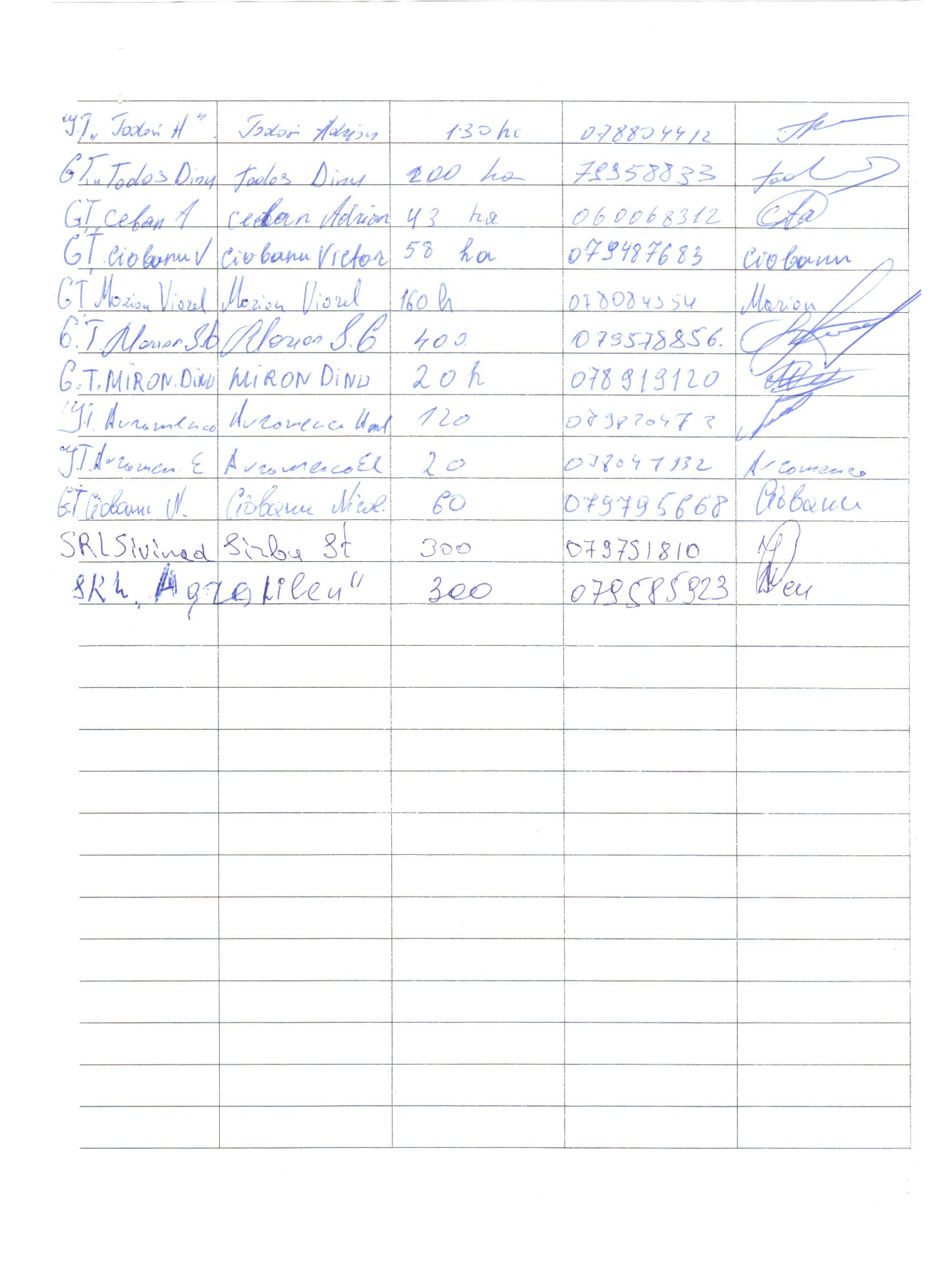 G.T. „Todos A". Todos Adrian 130 ha 078804412
G.T. „Todos Dinu Todos Dinu 200 ha 79958833 Tod
GT. Ceban A Ceban Adrian 43 ha 060068312
GT. Ciobanu V Ciobanu Victor 58 ha 079487683 Ciobanu
GT Marian Viorel Marian Viorel 160 h 078084954 Marian
G.T. Marian S.G Marian S.G 400 079578856.
G.T. MIRON. DINU MIRON DINU 20 h 078919120
G.T Avramenco Avramenco 120
G.T. Avramen. E Avramenco El 20 078047132 Avramenco
G.T Ciobanu N. Ciobanu Nicol. 60 079795668 Ciobanu
SRL Sivinad Sirbu St 300 079751810
300 079585923